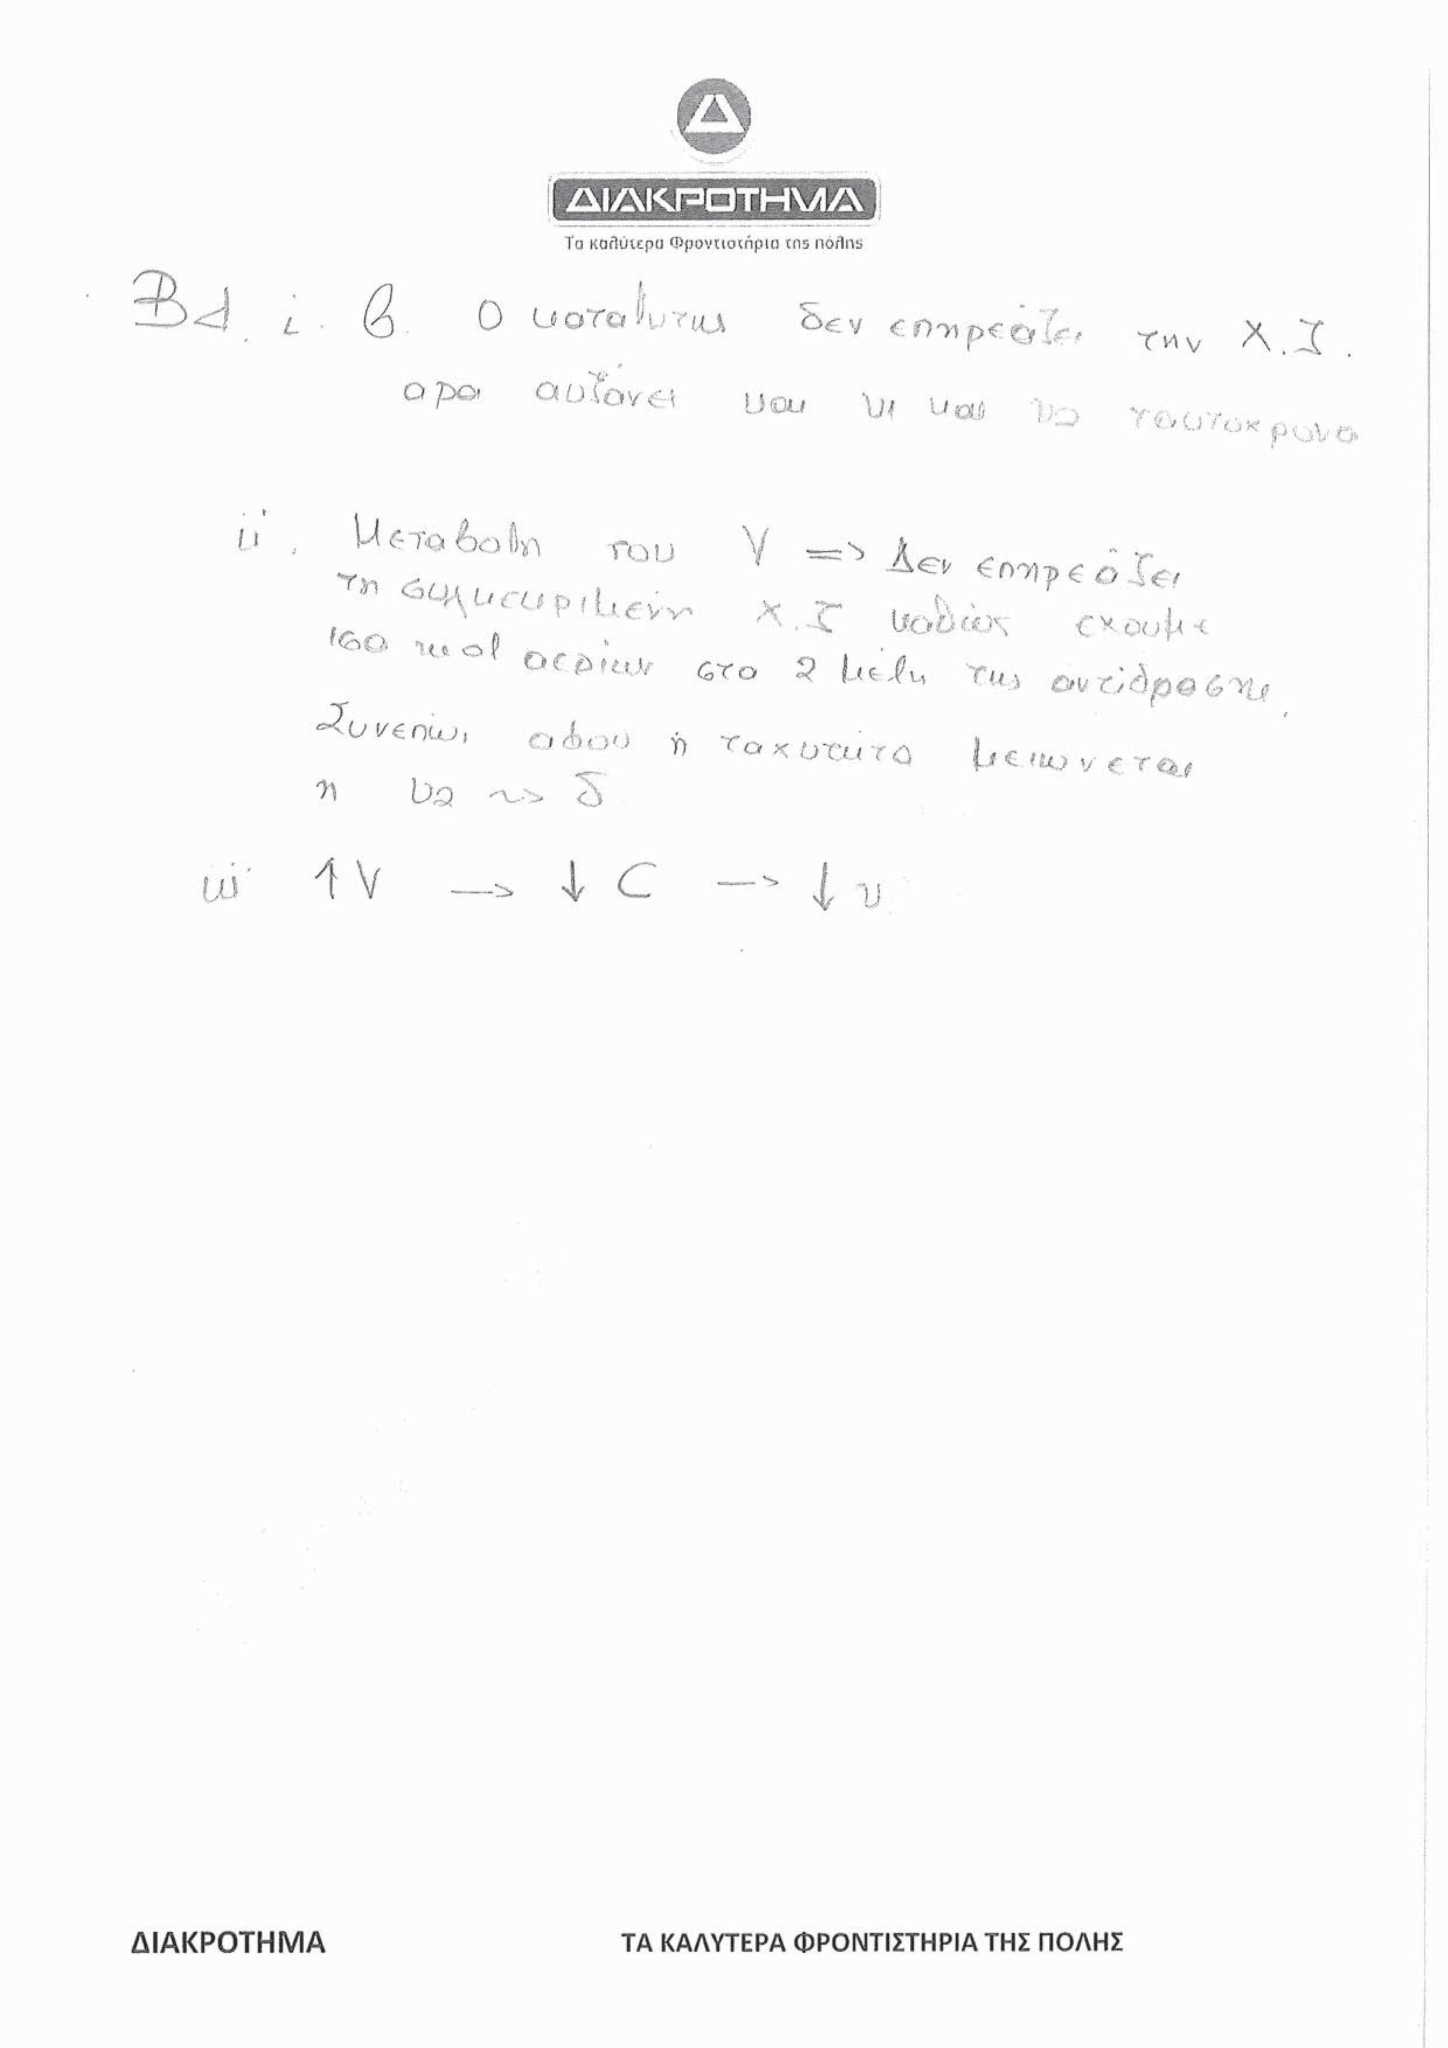 Δ
ΔΙΑΚΡΟΤΗΜΑ
Τα καλύτερα Φροντιστήρια της πόλης
Β4. i. β. Ο καταλυτης δεν επηρεάζει την Χ.Ι.
αρα αυξάνει και υ1 και υ2 ταυτοχρονα
ii. Μεταβολη του V => Δεν επηρεάζει
τη συγκεκριμενη Χ.Ι καθώς εχουμε
ισα mol αεριων στα 2 μελη της αντιδρασης.
Συνεπως αφου η ταχυτητα μειωνεται
η υ2 ~> δ
iii ↑V –> ↓ C –> ↓ υ
ΔΙΑΚΡΟΤΗΜΑ ΤΑ ΚΑΛΥΤΕΡΑ ΦΡΟΝΤΙΣΤΗΡΙΑ ΤΗΣ ΠΟΛΗΣ